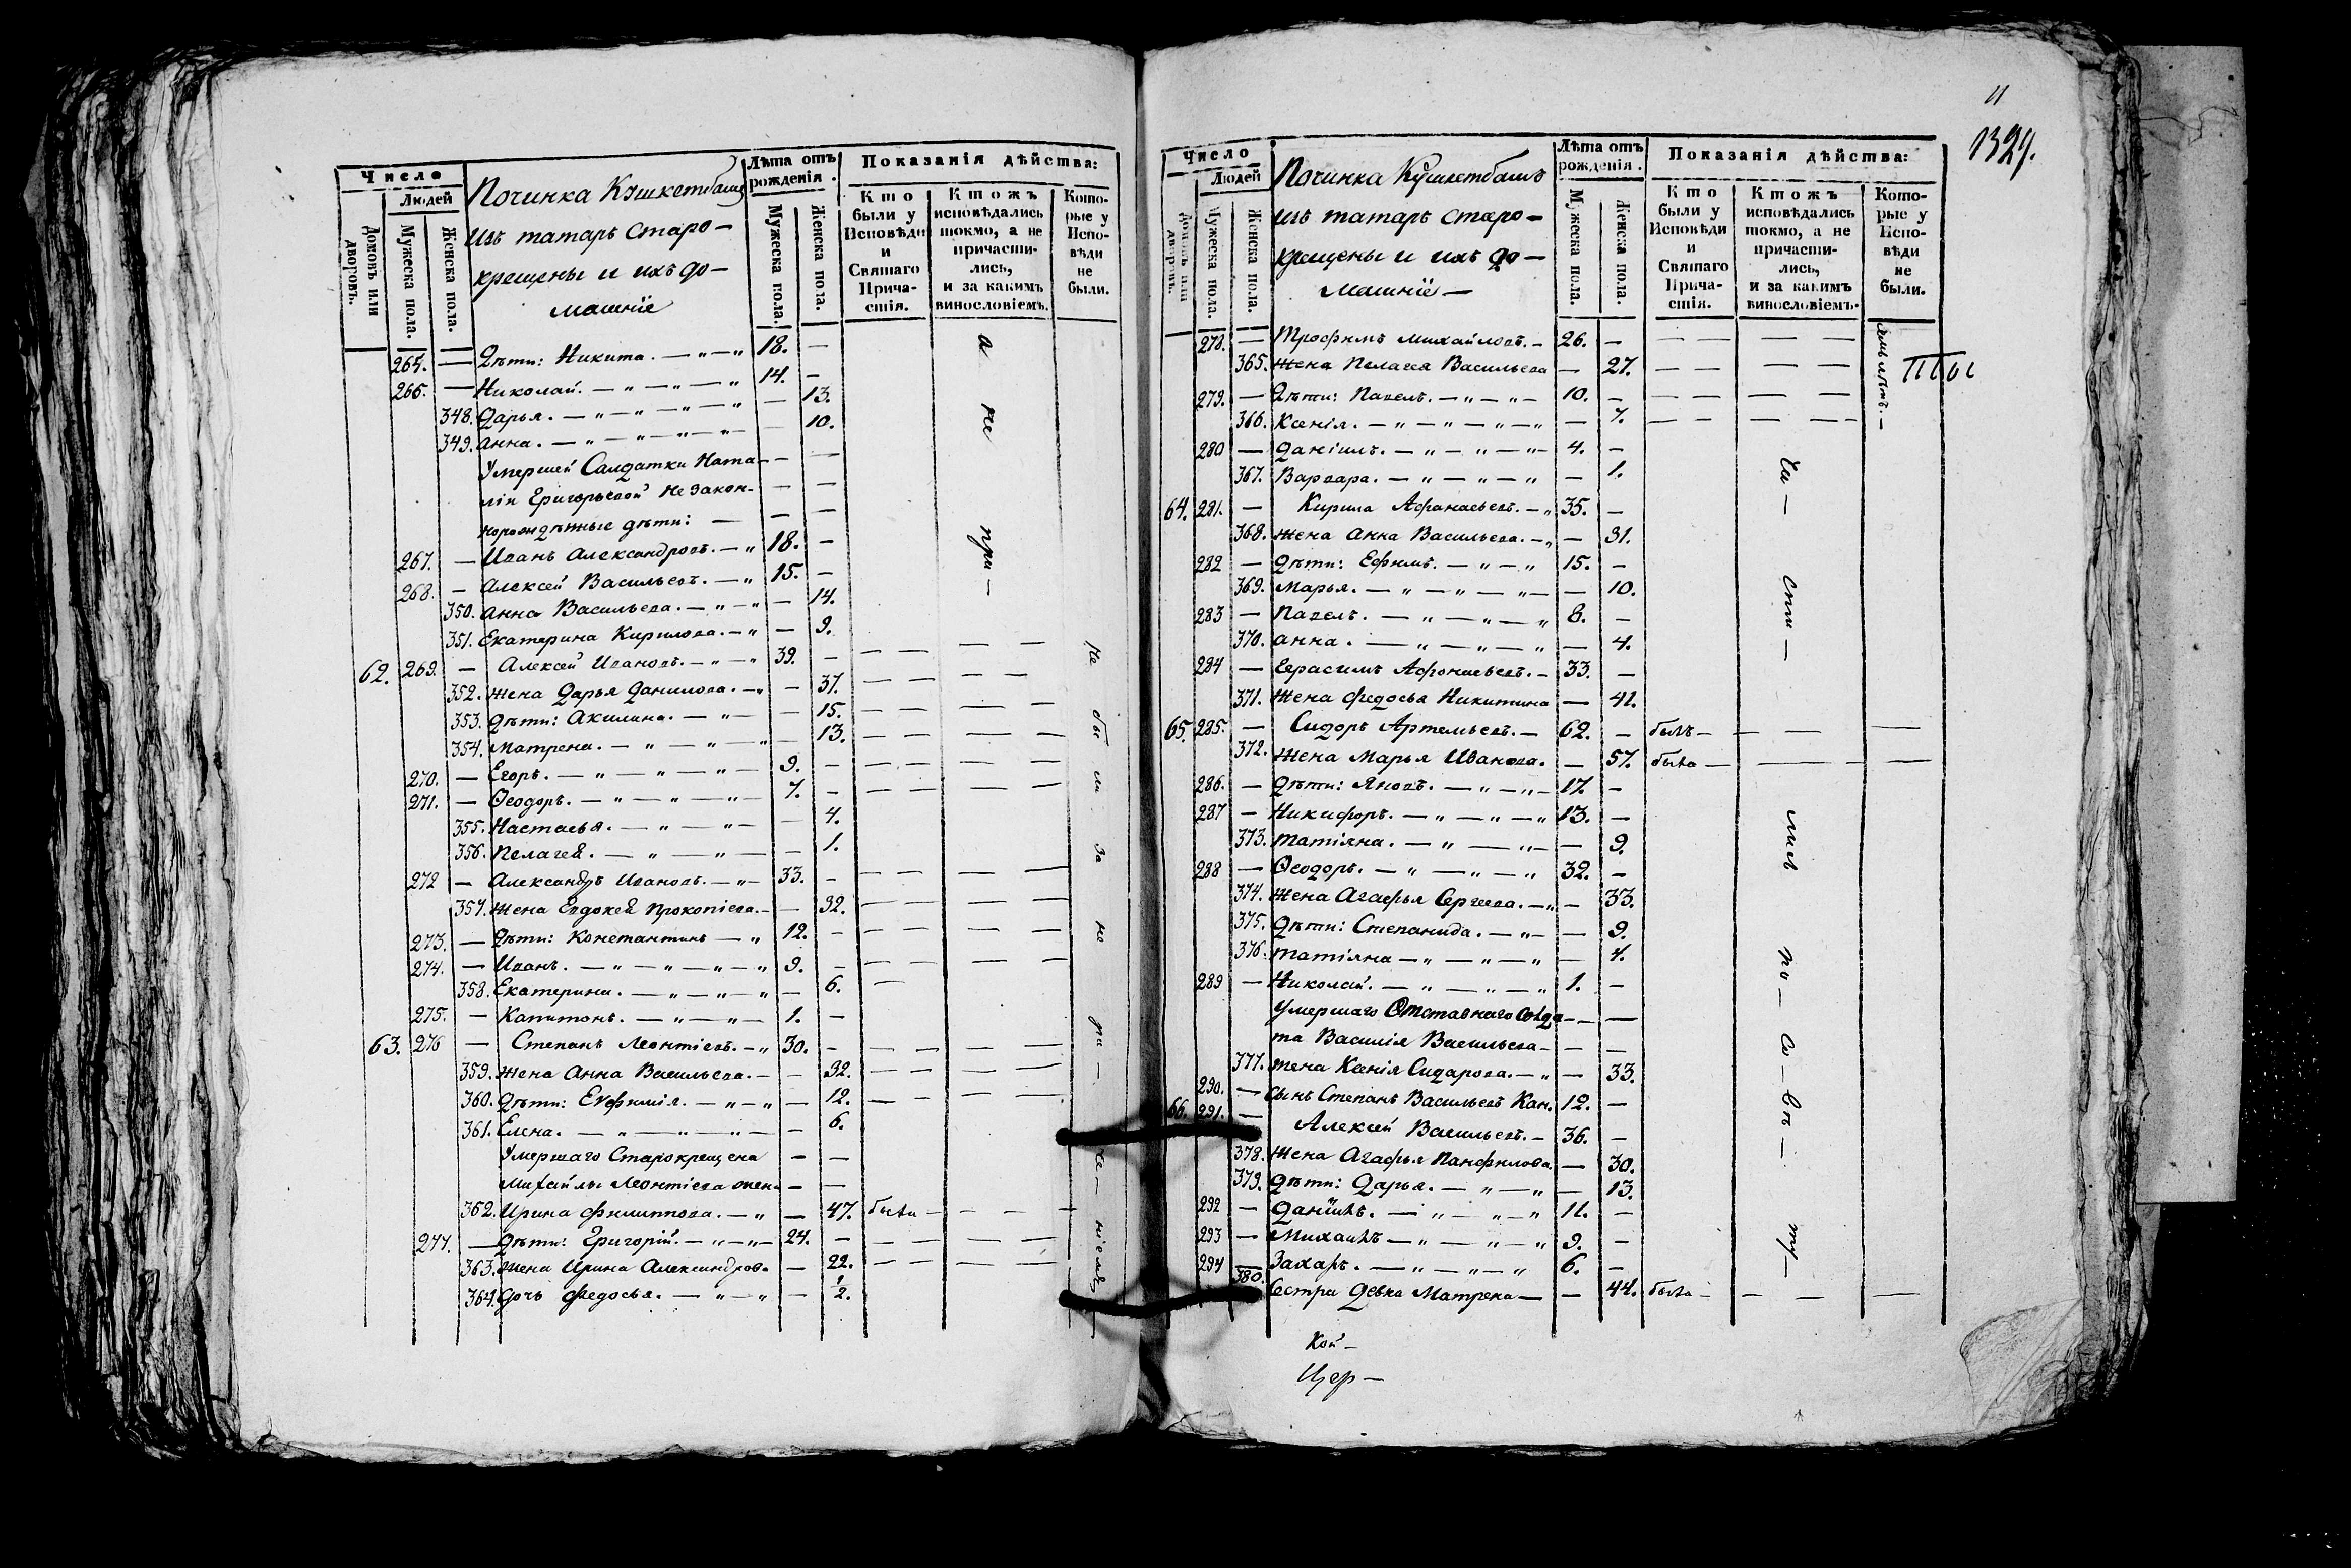 Число
Людей
Домовъ или дворовъ.
Мужеска пола.
Женска пола.
Починка Кушкетбашъ
изъ татаръ старо-
крещены и ихъ до-
машніе
Лѣта отъ рожденія.
Мужеска пола.
Женска пола.
Показанія дѣйства:
Кто были у Исповѣди и Святаго Причастія.
Ктожъ исповѣдались токмо, а не причастились, и за какимъ винословіемъ.
Которые у Исповѣди не были.
264. — Дѣти: Никита. — „ — „ 18. —
265. — Николай. — „ — „ — „ 14. —
348. Дарья. — „ — „ — „ — „ — 13.
349. Анна. — „ — „ — „ — „ — — 10.
Умершей Салдатки Ната- — —
ліи Григорьевой Незакон- — —
норожденные дѣти: — — —
267. — Иванъ Александровъ. — „ 18. —
268. — Алексей Васильевъ. — „ 15. —
350. Анна Васильева. — „ — „ — 14.
351. Екатерина Кирилова. — „ — 9.
62. 269. — Алексей Ивановъ. — „ — „ 39. — — — — —
352. Жена Дарья Данилова. — „ — 37. — — — —
353. Дѣти: Акилина. — „ — — 15. — — — —
354. Матрена. — „ — „ — „ — 13. — — — —
270. — Егоръ. — „ — „ — „ — 9. — — — — —
271. — Ѳеодоръ. — „ — „ — „ — 7. — — — — —
355. Настасья. — „ — „ — — 4.
356. Пелагея. — „ — „ — — 1.
272 — Александръ Ивановъ. — „ — 33. — — — — —
357. Жена Евдокея Прокопіева. — — 32. — — — —
273. — Дѣти: Константинъ — „ 12. — — — — —
274. — Иванъ. — „ — „ — „ — „ 9. — — — — —
358. Екатерина. — „ — „ — „ — 6. —
275. — Капитонъ. — „ — „ — 1. —
63. 276 — Степанъ Леонтіевъ. — „ 30. — — — — —
359. Жена Анна Васильева. — — 32. — — — —
360. Дѣти: Евфимія. — „ — „ — 12. — — — —
361. Елена. — „ — „ — „ — — 6.
Умершаго Старокрещена — —
Михайлы Леонтіева жена — —
362. Ирина Филиппова. — „ — 47. была — — — —
277. — Дѣти: Григорій. — „ — „ — 24. — — — — —
363. Жена Ирина Александрова — 22. — — — —
364. Дочь Федосья. — „ — „ — 1/2.
а не при-
Не бы ли за не ра- че- ніемъ
11
1329.
Число
Людей
Домовъ или дворовъ.
Мужеска пола.
Женска пола.
Починка Кушкетбашъ
изъ татаръ старо-
крещены и ихъ до-
машніе —
Лѣта отъ рожденія.
Мужеска пола.
Женска пола.
Показанія дѣйства:
Кто были у Исповѣди и Святаго Причастія.
Ктожъ исповѣдались токмо, а не причастились, и за какимъ винословіемъ.
Которые у Исповѣди не были.
278. — Трофимъ Михайловъ. — 26. — — — — —
365. Жена Пелагея Васильева — 27. — — — —
279. — Дѣти: Павелъ. — „ — „ — 10. — — — — —
366. Ксенія. — „ — „ — „ — „ — 7. — — — —
280 — Даніилъ. — „ — „ — „ — 4. —
367. Варвара. — „ — „ — „ — 1.
64. 281. — Кирила Афанасьевъ. — „ 35. —
368. Жена Анна Васильева. — „ — 31.
282 — Дѣти: Ефимъ. — „ — „ 15. —
369. Марья. — „ — „ — „ — — 10.
283 — Павелъ. — „ — „ — „ 8. —
370. Анна. — „ — „ — „ — 4.
284 — Герасимъ Афонасьевъ. — 33. —
371. Жена Федосья Никитина — 41.
65. 285. — Сидоръ Артемьевъ. — 62. — былъ — — — —
372. Жена Марья Иванова. — 57. была — — —
286. — Дѣти: Яковъ. — „ — „ — 17. —
287 — Никифоръ. — „ — „ — „ 13. —
373. Татіяна. — „ — „ — — 9.
288 — Ѳеодоръ. — „ — „ — „ 32. —
374. Жена Агафья Сергеева. — „ — 33.
375. Дѣти: Степанида. — „ — — 9.
376. Татіяна — „ — „ — „ — 4.
289 — Николай. — „ — „ — „ 1. —
Умершаго Отставнаго Солда- — —
та Василія Васильева — — —
377. Жена Ксенія Сидарова. — „ — 33.
290. — Сынъ Степанъ Васильевъ Кан. 12. —
66. 291. — Алексей Васильевъ. — 36. —
378. Жена Агафья Панфилова. — 30.
379. Дѣти: Дарья. — „ — „ — 13.
292 — Даніилъ. — „ — „ — „ 11. —
293 — Михаилъ — „ — „ — „ 9. —
294 — Захаръ. — „ — „ — „ 6. —
380. Сестра девка Матрена — — 44. была — — — —
ча- сти- лись по- со- вѣ- ту-
Кой-
Цер-